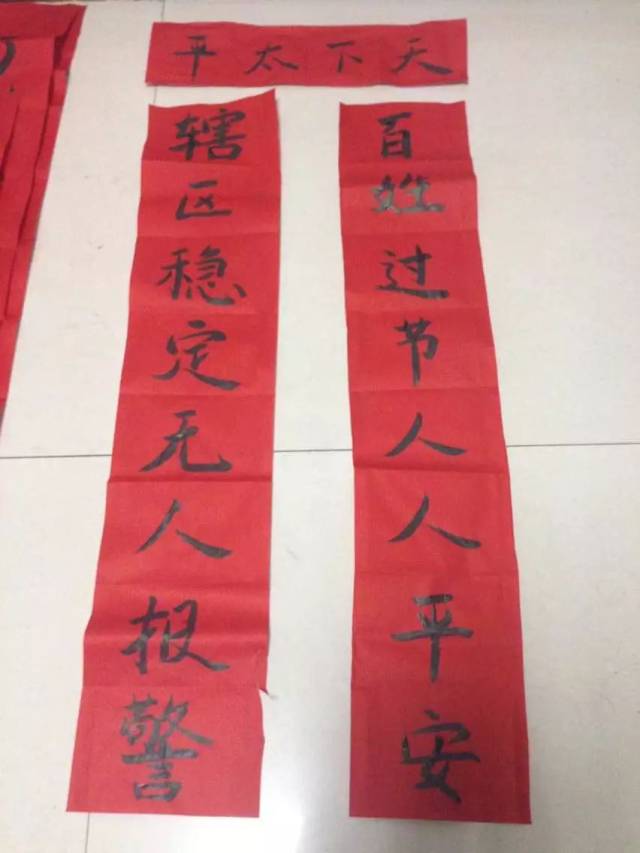 天下太平
百姓过节人人平安
辖区稳定无人报警